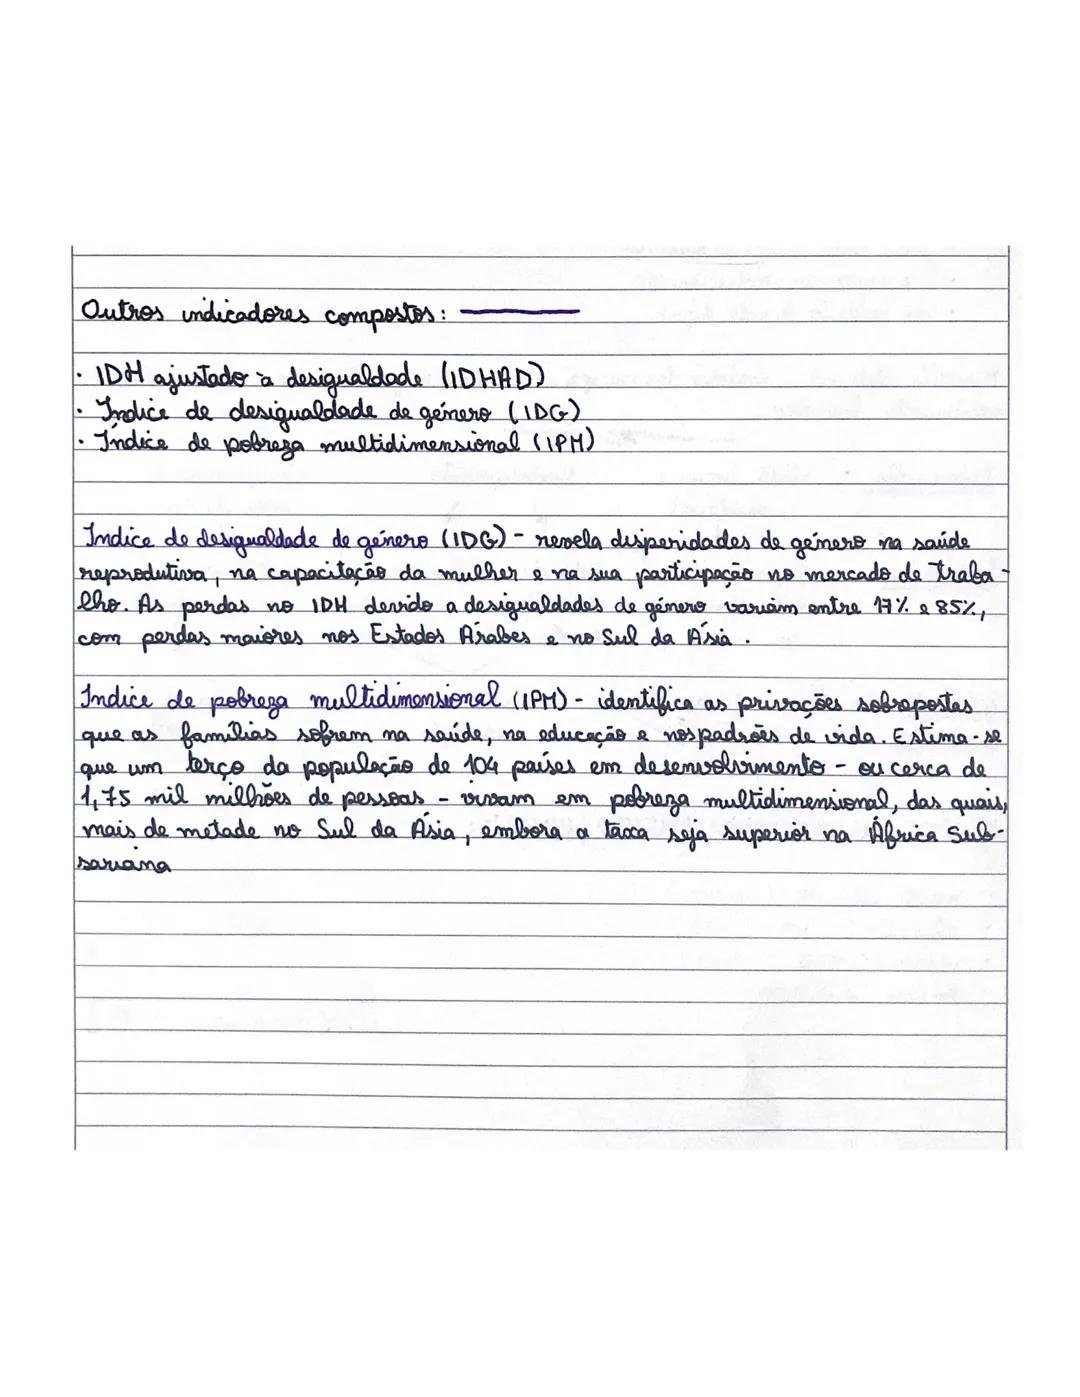 Outros indicadores compostos:
· IDH ajustado à desigualdade (IDHAD)
· Índice de desigualdade de género (IDG)
· Índice de pobreza multidimensional (IPM)
Índice de desigualdade de género (IDG) - revela disperidades de género na saúde
reprodutiva, na capacitação da mulher e na sua participação no mercado de traba-
lho. As perdas no IDH devido a desigualdades de género variam entre 17% e 85%,
com perdas maiores nos Estados Árabes e no Sul da Ásia.
Índice de pobreza multidimensional (IPM) - identifica as privações sobrepostas
que as famílias sofrem na saúde, na educação e nos padrões de vida. Estima-se
que um terço da população de 104 países em desenvolvimento - ou cerca de
1,75 mil milhões de pessoas - vivam em pobreza multidimensional, das quais,
mais de metade no Sul da Ásia, embora a taxa seja superior na África Sub-
sariana